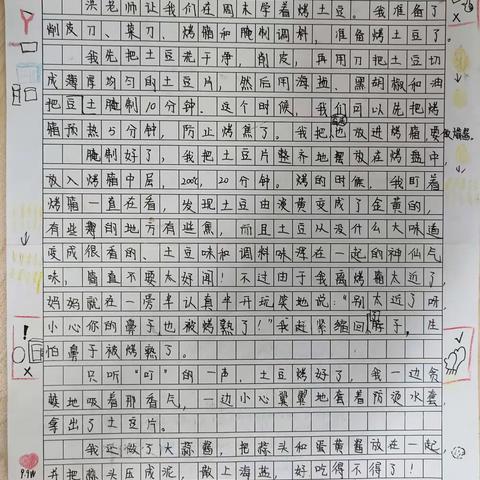 洪老师让我们在周末学着烤土豆。我准备了
削皮刀、菜刀、烤箱和腌制调料，准备烤土豆了。
我先把土豆洗干净，削皮，再用刀把土豆切
成薄厚均匀的土豆片，然后用海盐、黑胡椒和油
把豆土腌制10分钟。这个时候，我们可以先把烤
箱预热5分钟，防止烤焦了。我把也放进烤箱，要
腌制好了，我把土豆片整齐地摆放在烤盘中，
放入烤箱中层，200℃，20分钟。烤的时候，我盯着
烤箱一直在看，发现土豆由淡黄变成了金黄的，
有些薄的地方有些焦，而且土豆从没什么大味道
变成很香的、土豆味和调料味混在一起的神仙气
味，简直不要太好闻！不过由于我离烤箱太近了，
妈妈就在一旁半认真半开玩笑地说：“别太近了呀，
小心你的鼻子也被烤熟了！”我赶紧缩回脖子，生
怕鼻子被烤熟了。
只听“叮”的一声，土豆烤好了，我一边贪
婪地吸着那香气，一边小心翼翼地套着防烫水套，
拿出了土豆片。
我还做了大蒜酱，把蒜头和蛋黄酱放在一起，
并把蒜头压成泥，撒上海盐，好吃得不得了！